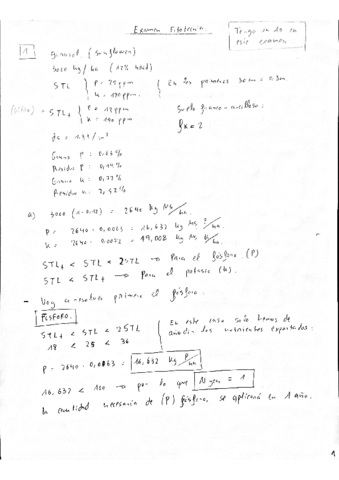 Examen Fitotecnia
Tengo un 10 en
este examen
1
girasol (sunflower)
3000 kg/ha (12% hdad)
STL { P = 25 ppm
K = 190 ppm
En los primeros 30 cm = 0.3 m
STL+ { P = 18 ppm
K = 190 ppm
Suelo franco-arcilloso:
fk = 2
Grano P: 0.63%
Residuo P: 0.14%
Grano K: 0.72%
Residuo K:
a) 3000 (1-0.12) = 2640 kg MS/ha
P = 2640 · 0,0063 = 16,632 kg
K = 2640 · 0.0072 = 19,008 kg
STL+ < STL < 2STL → Para el fósforo (P)
STL < STL+ → Para el potasio (K)
- Voy a resolver primero el fósforo
FÓSFORO
STL+ < STL < 2STL
18 < 25 < 36
En este caso solo hemos de
añadir los nutrientes exportados:
P = 2640 · 0,0063 = 16,632 kg P/ha
16,632 < 150 → por lo que N gen = 1
la cantidad necesaria de (P) fósforo, se aplicará en 1 año.
1